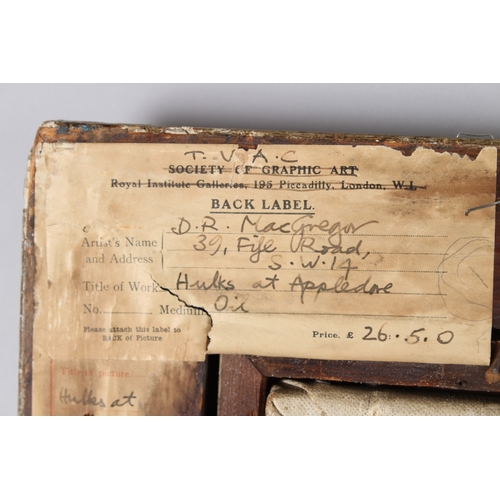 T. V. A. C
SOCIETY OF GRAPHIC ART
Royal Institute Galleries, 195 Piccadilly, London, W.1.
BACK LABEL.
Artist's Name D. R. MacGregor
and Address 39, Fife Road,
S. W. 14
Title of Work Hulks at Appledore
No. Medium Oil
Please attach this label to
BACK of Picture
Price. £ 26 . 5. 0
Title of picture
Hulks at